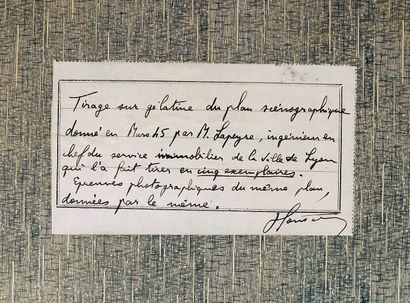 Tirage sur gélatine du plan scénographique
donné en Mars 45 par M. Lapeyre, ingénieur en
chef du service immobilier de la Ville de Lyon
qui l'a fait tirer en cinq exemplaires.
Epreuves photographiques du même plan,
données par le même.